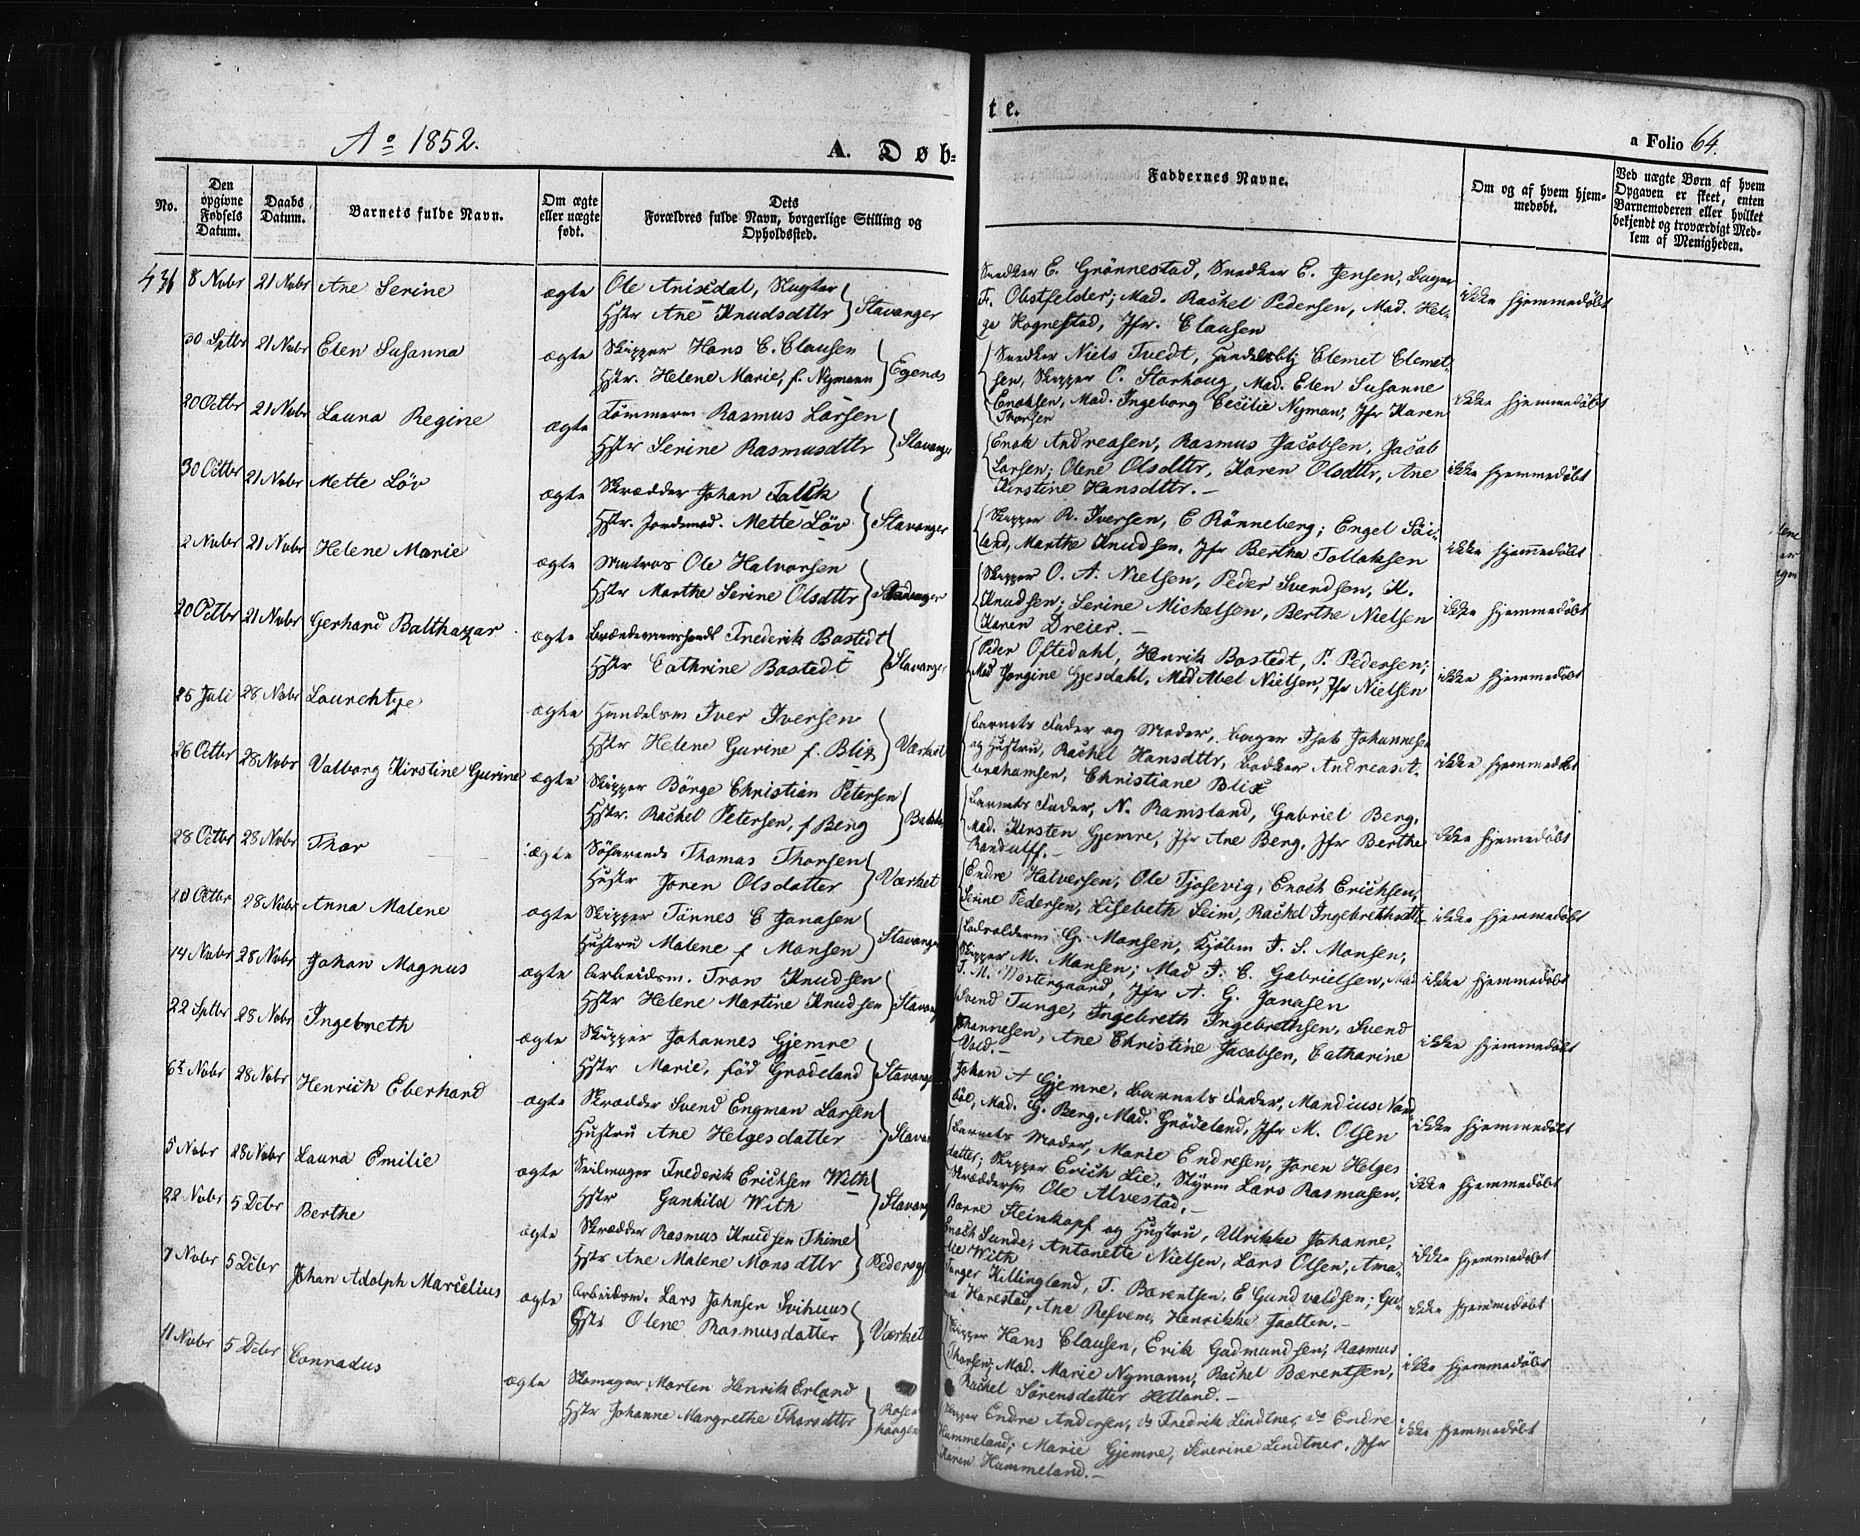 Ao 1852.
A. Døb-
te.
a Folio 64.
No.
Den opgivne Fødsels Datum.
Daabs Datum.
Barnets fulde Navn.
Om ægte eller uægte født.
Dets Forældres fulde Navn, borgerlige Stilling og Opholdssted.
Faddernes Navne.
Om og af hvem hjemmedøbt.
Ved uægte Børn af hvem Opgaven er skeet, enten Barnemoderen eller hvilket bekjendt og troværdigt Medlem af Menigheden.
436 8 Novbr 21 Novbr Ane Serine ægte Ole Anixdal, Slagter
Hstr Ane Knudsdttr Stavanger
Snedker E. Grönnestad, Snedker E. Jensen, Bager
F. Obstfelder; Mad. Rachel Pedersen, Mad. Hel-
ga Hognestad, Jfr. Clausen
ikke hjemmedøbt
30 Septbr 21 Novbr Elen Susanna ægte Skipper Hans C. Clausen
Hstr. Helene Marie, f. Nymann Egenæs
Snedker Niels Tvedt, Handelsbtj Clemet Clemet-
sen, Skipper O. Storhoug, Mad. Elen Susanne
Enoksen, Mad. Ingeborg Cecilie Nyman, Jfr Karen
Thorsen
ikke hjemmedøbt
20 Octbr 21 Novbr Laura Regine ægte Tømmerm. Rasmus Larsen
Hstr Serine Rasmusdttr Stavanger
Enok Andreasen, Rasmus Jacobsen, Jacob
Larsen; Olene Olsdttr, Karen Olsdttr, Ane
Kirstine Hansdttr. —
ikke hjemmedøbt
30 Octbr 21 Novbr Mette Löv ægte Skrædder Johan Falck
Hstr. Jordemod. Mette Löv Stavanger
Skipper R. Iversen, E Rönneberg; Engel Söi-
land, Marthe Knudsen, Jfr Bertha Tollaksen
ikke hjemmedøbt
2 Novbr 21 Novbr Helene Marie ægte Matros Ole Halvorsen
Hstr Marthe Serine Olsdttr Stavanger
Skipper O. A. Nielsen, Peder Svendsen, K.
Knudsen; Serine Michelsen, Berthe Nielsen
Karen Dreier. —
ikke hjemmedøbt
20 Octbr 21 Novbr Gerhard Balthazar ægte Frederik Bastedt
Hstr Cathrine Bastedt Stavanger
Peder Oftedahl, Henrik Bastedt, P. Pedersen;
Mad Jorgine Gjesdahl, Mad Abel Nielsen, Jfr Nielsen
ikke hjemmedøbt
25 Juli 28 Novbr Laurentze ægte Handelsm Iver Iversen
Hstr Helene Gurine f. Blix Værket
Barnets Fader og Moder, Bager Johannesen
og Hustru, Rachel Hansdttr, Bødker Andreas A-
brahamsen, Christiane Blix
ikke hjemmedøbt
26 Octbr 28 Novbr Valborg Kirstine Gurine ægte Skipper Börge Christian Petersen
Hstr. Rachel Petersen, f Berg
Barnets Fader, N. Ramsland, Gabriel Berg,
Mad. Kirsten Gjemre, Jfr Ane Berg, Jfr Berthe
Randulff. —
ikke hjemmedøbt
28 Octbr 28 Novbr Thor ægte Söfarende Thomas Thorsen
Hustr Joren Olsdatter Værket
Endre Halversen, Ole Tjosevig, Enoch Erichsen,
Serine Pedersen, Lisebeth Seim, Rachel Ingebrethsdttr
ikke hjemmedøbt
Octbr 28 Novbr Anna Malene ægte Skipper Tönnes C Jonasen
Hustru Malene f Monsen Stavanger
G. Monsen, Kjöbm J. S. Monsen,
Skipper M. Monsen; Mad J. C. Gabrielsen, Mad
T. M. Westergaard, Jfr A. G. Jonasen
ikke hjemmedøbt
14 Novbr 28 Novbr Johan Magnus ægte Arbeidsm. Tron Knudsen
Hstr Helene Martine Knudsen Stavang
Svend Tunge, Ingebreth Ingebrethsen, Svend
Johannesen, Ane Christine Jacobsen, Catharine
Vold. —
ikke hjemmedøbt
22 Septbr 28 Novbr Ingebreth ægte Skipper Johannes Gjemre
Hstr Marie, föd Grödeland Stavang
Johan A Gjemre, Barnets Fader, Mandius Nord
böe, Mad. G. Berg, Mad. Grödeland, Jfr M. Olsen
ikke hjemmedøbt
6t Novbr 28 Novbr Henrich Eberhard ægte Skrædder Svend Engman Larsen
Hustru Ane Helgesdatter Stavan
Barnets Moder, Marie Endresen, Joren Helges
datter; Skipper Erich Lie, Styrm Lars Rasmusen,
Skræddersv Ole Alvestad. —
ikke hjemmedøbt
5 Novbr 28 Novbr Laura Emilie ægte Seilmager Frederik Erichsen With
Hstr Gunhild With Stavang
Borre Steinkopf og Hustru, Ulrikke Johanne,
Enoch Sunde, Antonette Nielsen, Lars Olsen, Ama-
lie With
ikke hjemmedøbt
22 Novbr 5 Decbr Berthe ægte Skrædder Rasmus Knudsen Thime
Hstr Ane Malene Monsdttr Pedersg
Torger Killingland, T. Bærentsen, E Gundvaldsen; Gu-
Harestad, Ane Refvem, Henrikke Tratten. —
ikke hjemmedøbt
7 Novbr 5 Decbr Johan Adolph Marcelius ægte Arbeidsm. Lars Johnsen Svihuus
Hstr Olene Rasmusdatter Værket
Skipper Hans Clausen, Erik Gudmundsen, Rasmus
Thorsen; Mad. Marie Nymann, Rachel Bærentsen,
Rachel Sörensdatter Hetland. —
ikke hjemmedøbt
11 Novbr 5 Decbr Conradus ægte Skomager Morten Henrik Erland
Hstr Johanne Margrethe Thorsdttr Rosen
haagen
Skipper Endre Andersen, do Fredrik Lindtner, do Endre
Hummeland; Marie Gjemre, Severine Lindtner, Jfr
Karen Hummeland. —
ikke hjemmedøbt